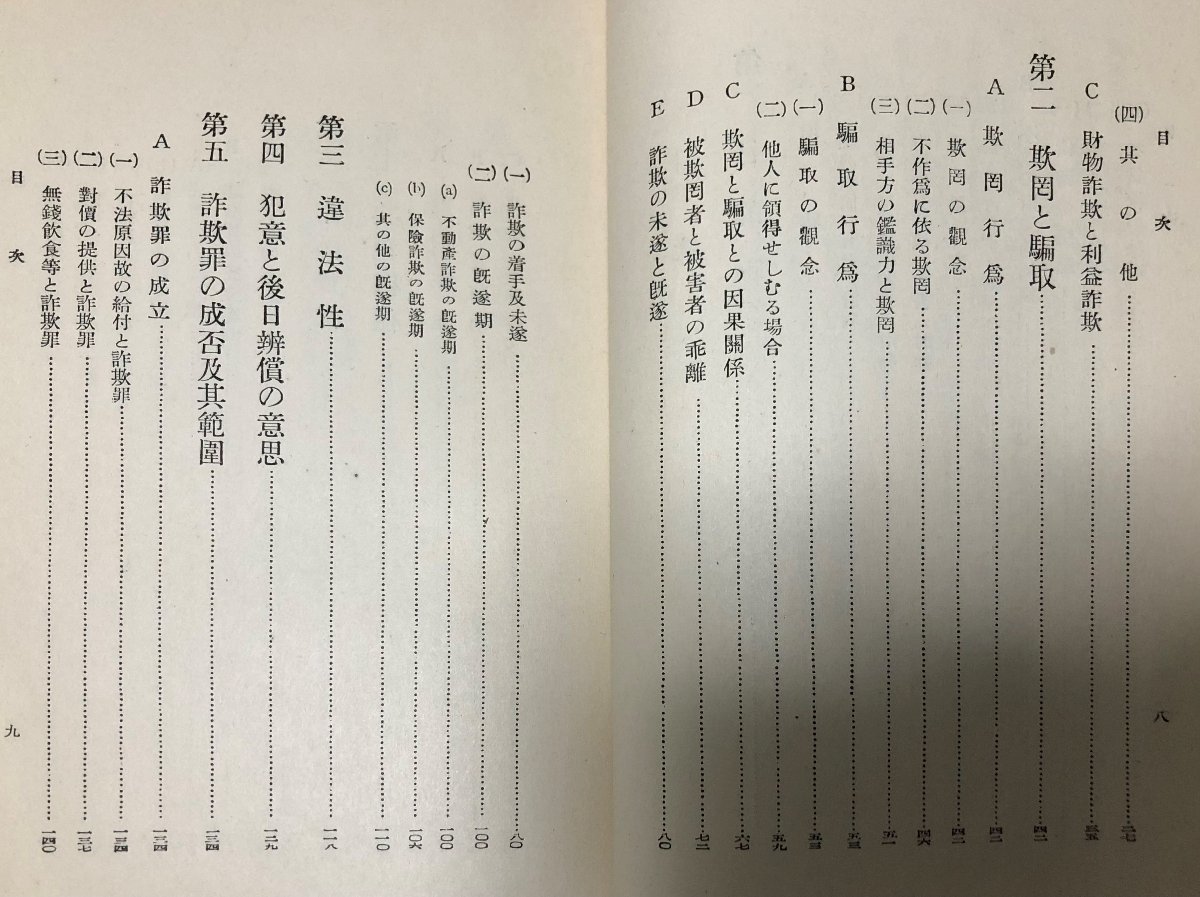 目次
八
(四) 其の他……二七
C 財物詐欺と利益詐欺……三五
第二 欺罔と騙取……四二
A 欺罔行爲……四二
(一) 欺罔の觀念……四二
(二) 不作爲に依る欺罔……四六
(三) 相手方の鑑識力と欺罔……五一
B 騙取行爲……五三
(一) 騙取の觀念……五三
(二) 他人に領得せしむる場合……五九
C 欺罔と騙取との因果關係……六七
D 被欺罔者と被害者の乖離……七二
E 詐欺の未遂と旣遂……八〇
(一) 詐欺の着手及未遂……八〇
(二) 詐欺の旣遂期……一〇〇
(a) 不動產詐欺の旣遂期……一〇〇
(b) 保險詐欺の旣遂期……一〇六
(c) 其の他の旣遂期……一一〇
第三 違法性……一一八
第四 犯意と後日辨償の意思……一二九
第五 詐欺罪の成否及其範圍……一三四
A 詐欺罪の成立……一三四
(一) 不法原因故の給付と詐欺罪……一三四
(二) 對價の提供と詐欺罪……一三七
(三) 無錢飮食等と詐欺罪……一四〇
目次
九